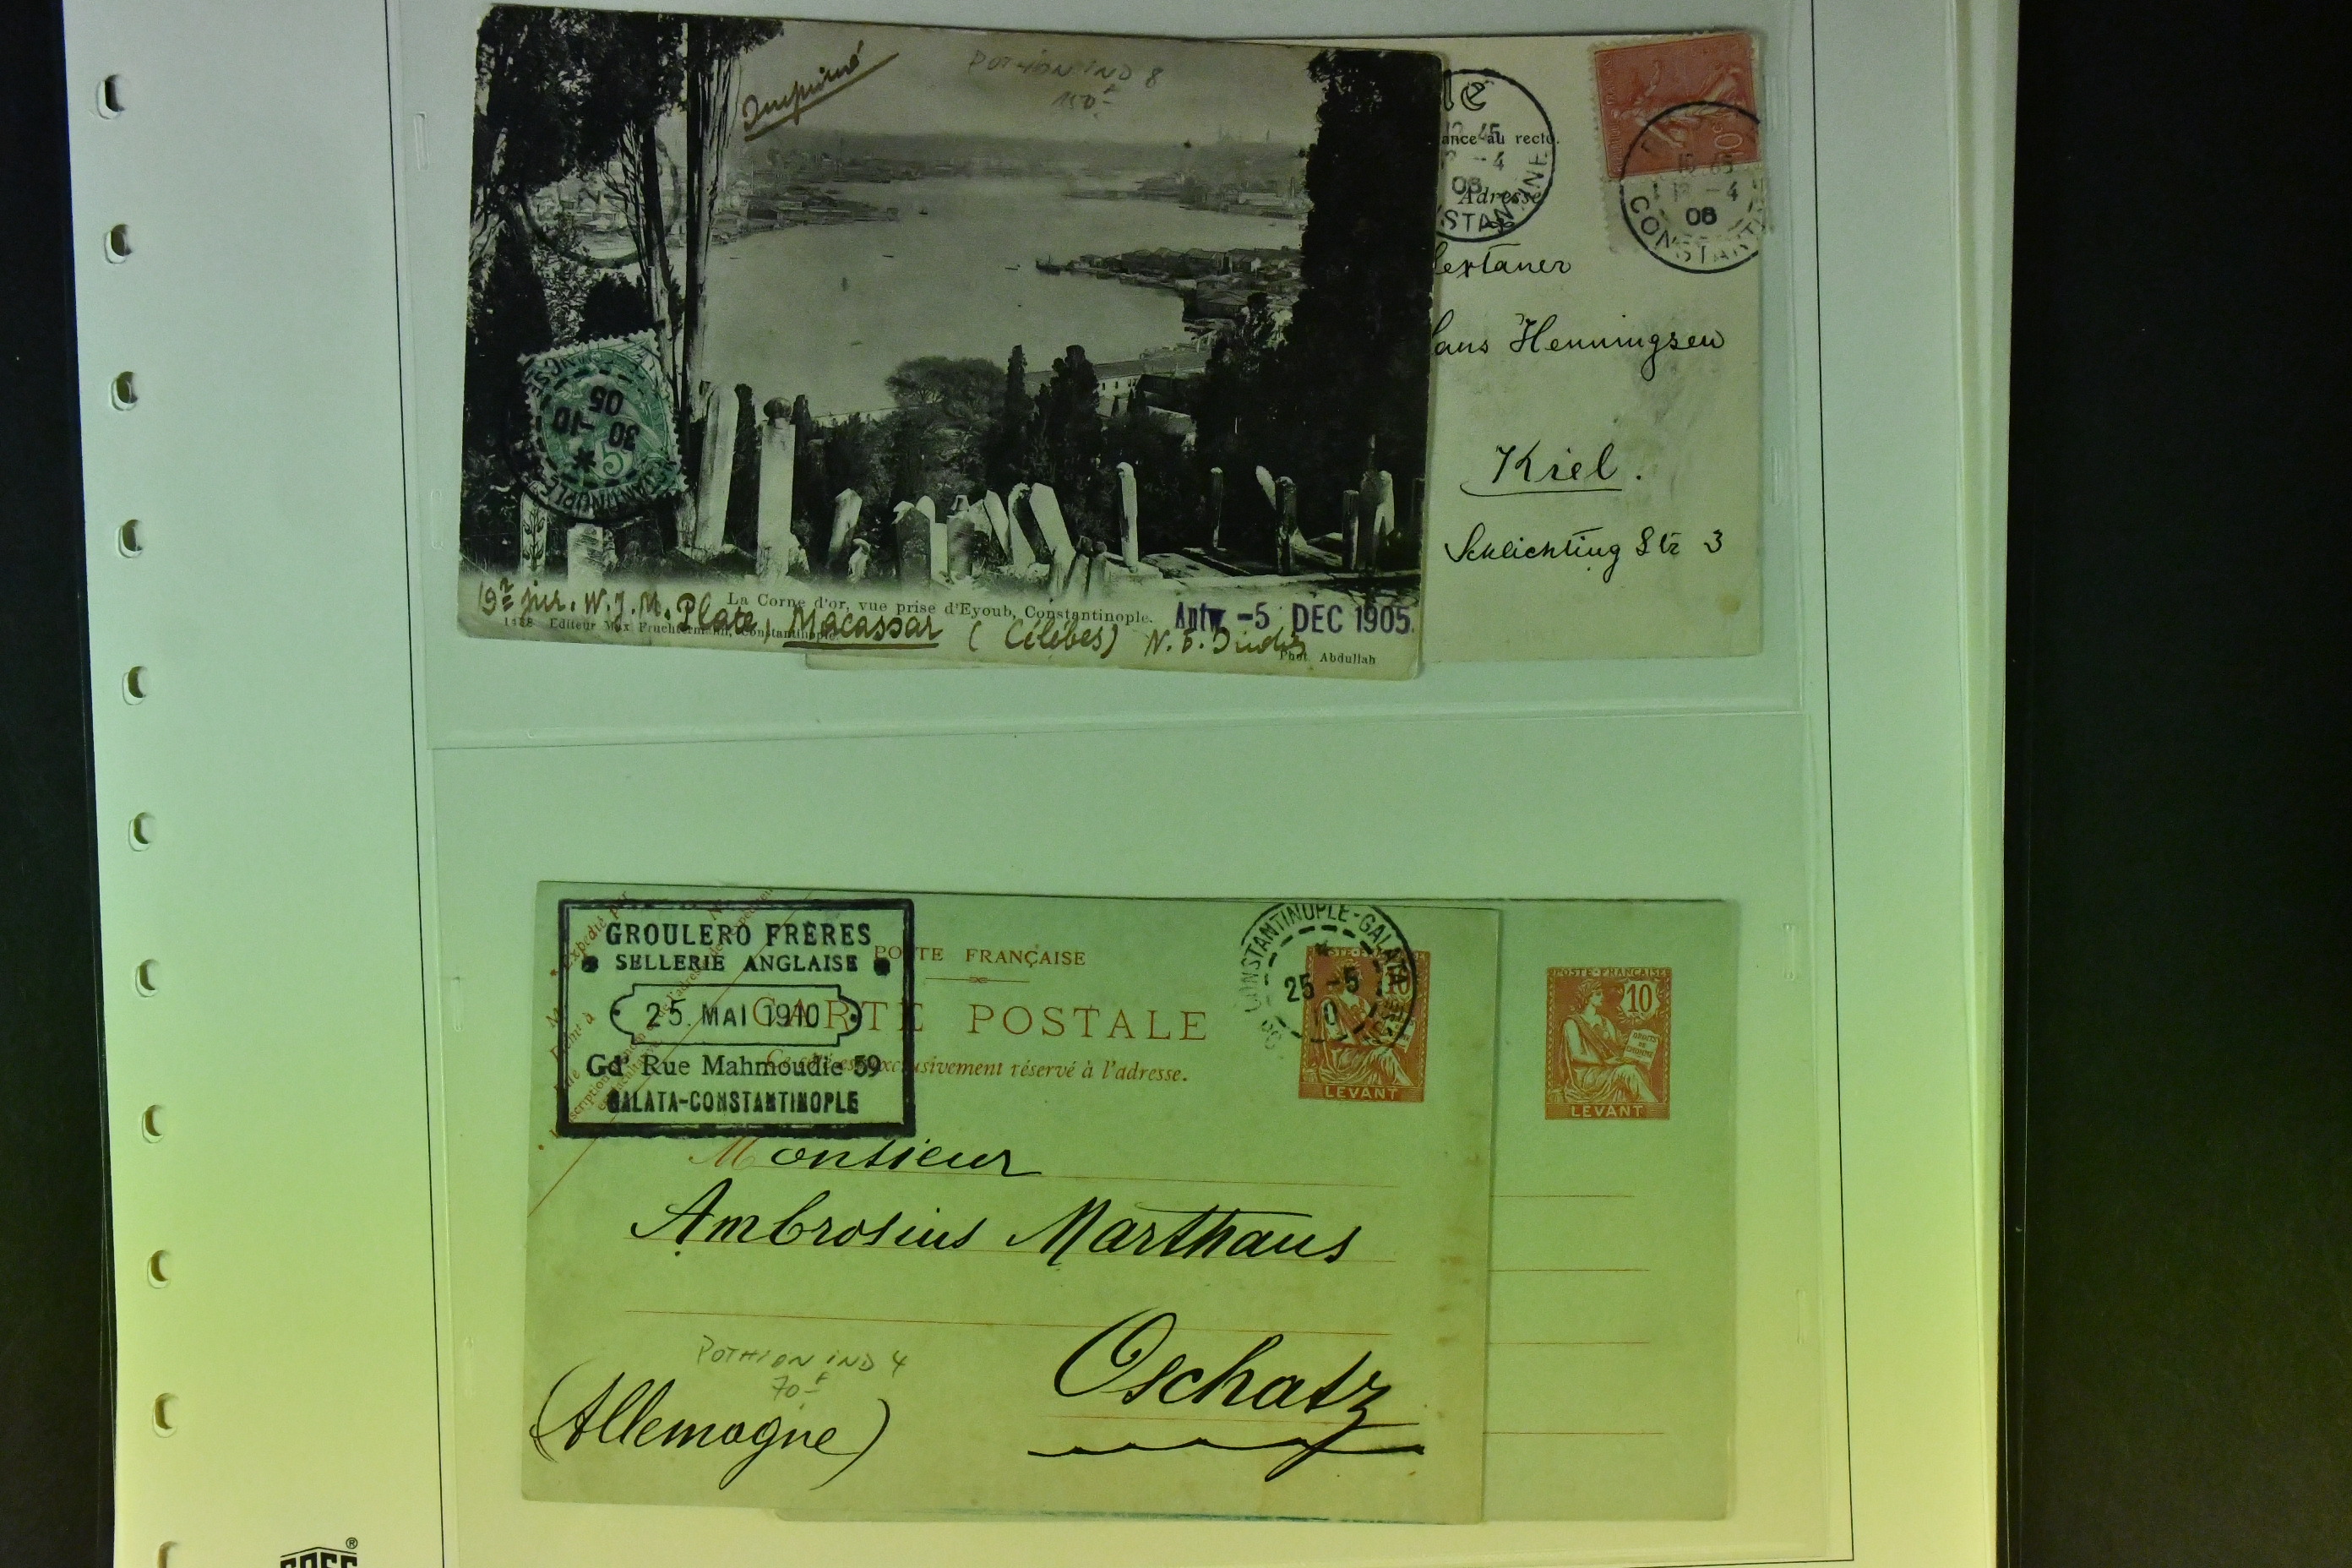 Imprimé
POTHION IND 8
150 F
5
30 -10
05
La Corne d'or, vue prise d'Eyoub, Constantinople.
Antw. -5 DEC 1905.
W. J. M. Plate, Macassar (Célèbes) N. E. Indië
1428 Editeur Max Fruchtermann, Constantinople
Phot. Abdullah
ance au recto.
Adresse
08
Henningsen
Kiel.
Schlichting Str 3
12 -4
08
CONSTANT
GROULERO FRÈRES
SELLERIE ANGLAISE
25 MAI 1910
Gde Rue Mahmoudie 59
GALATA-CONSTANTINOPLE
POSTE FRANÇAISE
CARTE POSTALE
Ce côté est exclusivement réservé à l'adresse.
CONSTANTINOPLE-GALATA
25 -5
10
LEVANT
POSTE FRANÇAISE
10
DROITS DE L'HOMME
LEVANT
Monsieur
Ambrosius Marthaus
Oschatz
POTHION IND 4
70 F
(Allemagne)